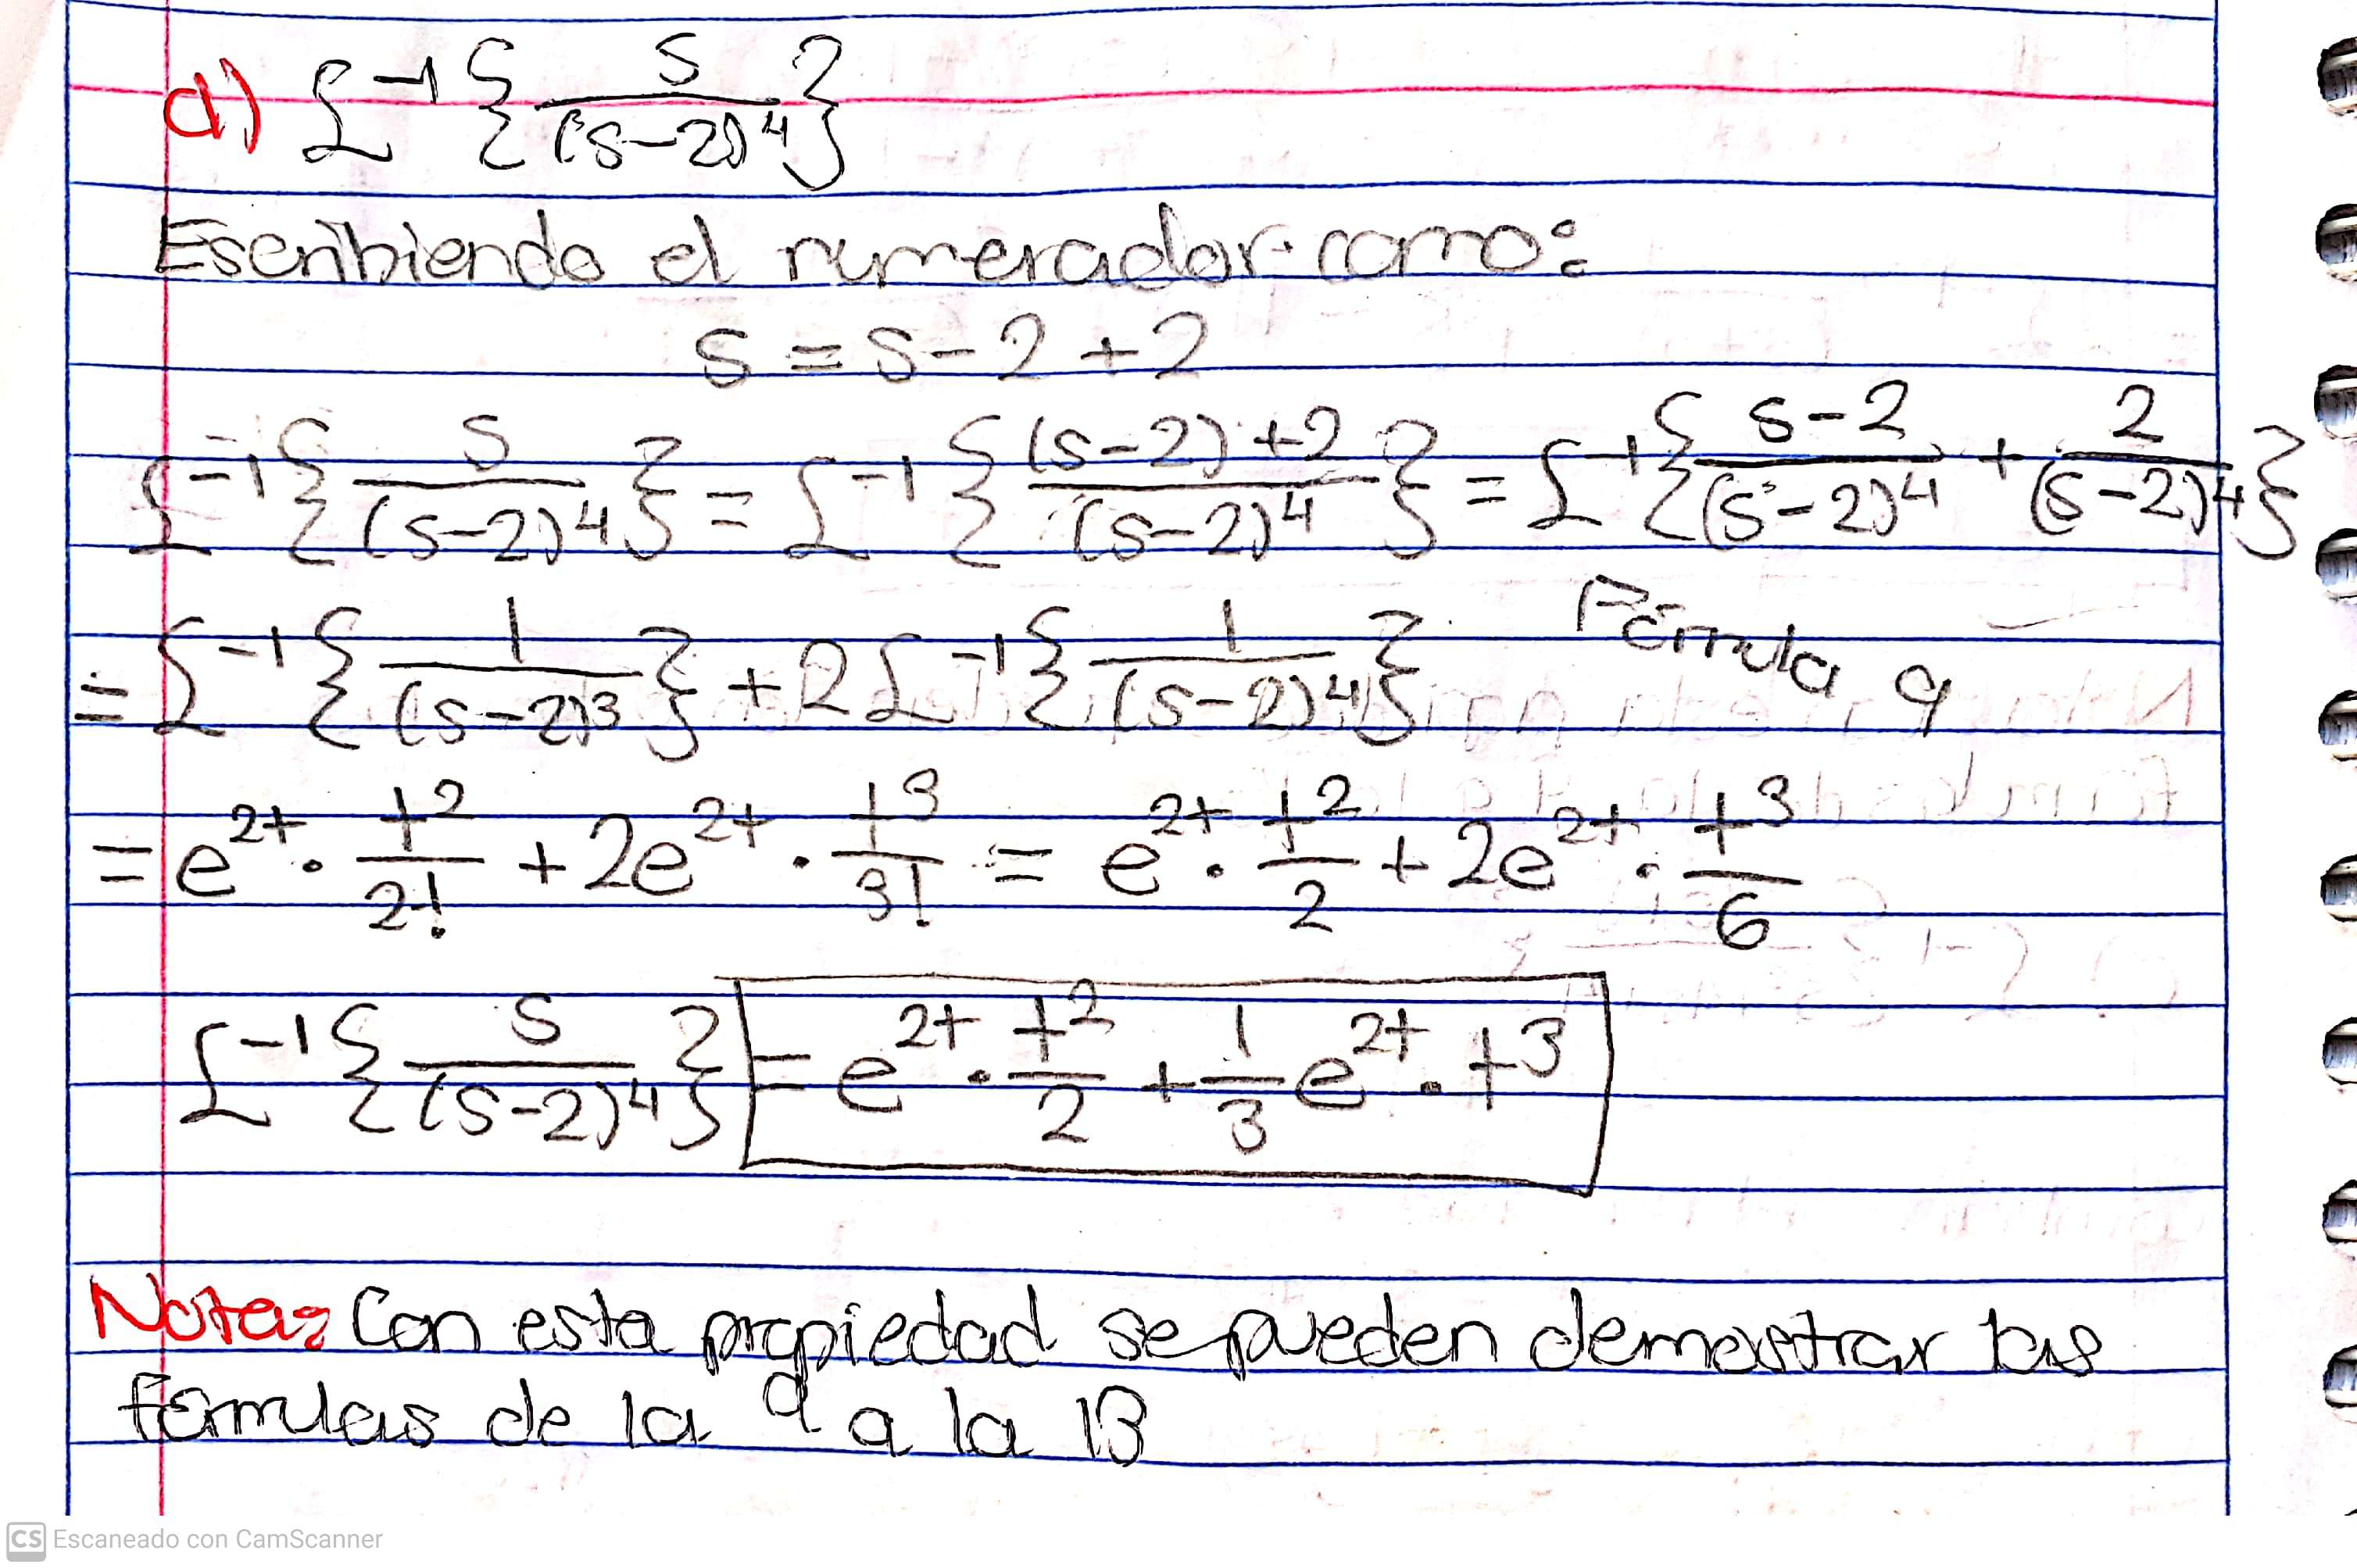 d) ℒ⁻¹{s/(s-2)⁴}
Escribiendo el numerador como:
s = s-2+2
ℒ⁻¹{s/(s-2)⁴} = ℒ⁻¹{((s-2)+2)/(s-2)⁴} = ℒ⁻¹{(s-2)/(s-2)⁴ + 2/(s-2)⁴}
= ℒ⁻¹{1/(s-2)³} + 2ℒ⁻¹{1/(s-2)⁴} Fórmula 9
= e²ᵗ · t²/2! + 2e²ᵗ · t³/3! = e²ᵗ · t²/2 + 2e²ᵗ · t³/6
ℒ⁻¹{s/(s-2)⁴} = e²ᵗ · t²/2 + 1/3 e²ᵗ · t³
Nota: Con esta propiedad se pueden demostrar las
fórmulas de la 9 a la 13
CS Escaneado con CamScanner